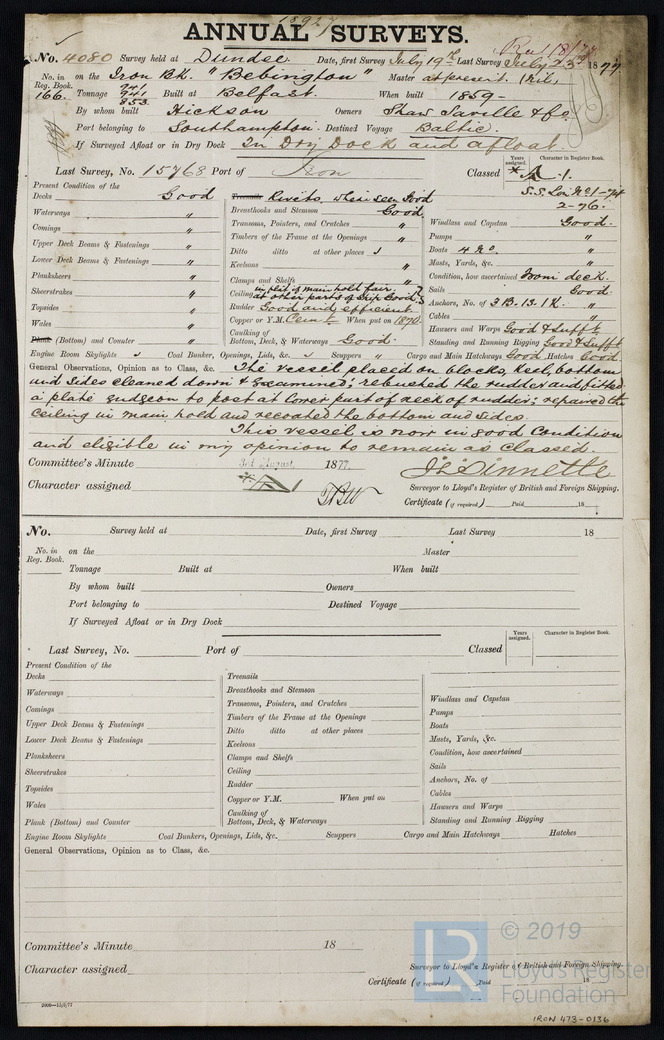 ANNUAL SURVEYS.
No. 4080 Survey held at Dundee Date, first Survey July 19th Last Survey July 23rd 1877
No. in Reg. Book. 166. on the Iron Bk. "Bebington" Master at present
Tonnage 941 853 Built at Belfast. When built 1859-
By whom built Hickson Owners Shaw Saville & Co.
Port belonging to Southampton. Destined Voyage Baltic.
If Surveyed Afloat or in Dry Dock In Dry Dock and afloat.
Last Survey, No. 15768 Port of Iron Classed Years assigned. Character in Register Book. *A.1.
S.S. Lon No1-74
2-76.
Present Condition of the
Decks Good
Waterways "
Comings "
Upper Deck Beams & Fastenings "
Lower Deck Beams & Fastenings "
Planksheers "
Sheerstrakes "
Topsides "
Wales "
Plank (Bottom) and Counter "
Treenails Rivets, when seen Good
Breasthooks and Stemson Good.
Transoms, Pointers, and Crutches "
Timbers of the Frame at the Openings "
Ditto ditto at other places "
Keelsons "
Clamps and Shelfs
Ceiling in flat of main hold fair, at other parts of ship Good.
Rudder Good and efficient.
Copper or Y.M. Cem't When put on 1870.
Caulking of Bottom, Deck, & Waterways Good.
Windlass and Capstan Good.
Pumps "
Boats 4 No. "
Masts, Yards, &c. "
Condition, how ascertained From deck.
Sails Good
Anchors, No. of 3B. 1S. 1K. "
Cables "
Hawsers and Warps Good & Suff't
Standing and Running Rigging Good & Sufft
Engine Room Skylights " Coal Bunker, Openings, Lids, &c. " Scuppers " Cargo and Main Hatchways Good Hatches Good.
General Observations, Opinion as to Class, &c. The vessel placed on blocks, keel, bottom
and sides cleaned down & examined; rebushed the rudder and fitted
a plate gudgeon to post at lower part of neck of rudder; repaired the
ceiling in main hold and recoated the bottom and sides.
This vessel is now in good condition
and eligible in my opinion to remain as classed.
Committee's Minute 3rd August 1877.
Character assigned *A1
Surveyor to Lloyd's Register of British and Foreign Shipping.
Certificate (if required) Paid 18
No. Survey held at Date, first Survey Last Survey 18
No. in Reg. Book. on the Master
Tonnage Built at When built
By whom built Owners
Port belonging to Destined Voyage
If Surveyed Afloat or in Dry Dock
Last Survey, No. Port of Classed Years assigned. Character in Register Book.
Present Condition of the
Decks
Waterways
Comings
Upper Deck Beams & Fastenings
Lower Deck Beams & Fastenings
Planksheers
Sheerstrakes
Topsides
Wales
Plank (Bottom) and Counter
Treenails
Breasthooks and Stemson
Transoms, Pointers, and Crutches
Timbers of the Frame at the Openings
Ditto ditto at other places
Keelsons
Clamps and Shelfs
Ceiling
Rudder
Copper or Y.M. When put on
Caulking of Bottom, Deck, & Waterways
Windlass and Capstan
Pumps
Boats
Masts, Yards, &c.
Condition, how ascertained
Sails
Anchors, No. of
Cables
Hawsers and Warps
Standing and Running Rigging
Engine Room Skylights Coal Bunkers, Openings, Lids, &c. Scuppers Cargo and Main Hatchways Hatches
General Observations, Opinion as to Class, &c.
Committee's Minute 18
Character assigned
Surveyor to Lloyd's Register of British and Foreign Shipping.
Certificate (if required) Paid 18
2000—15/3/77
LR © 2019
Lloyd's Register
Foundation
IRON 473-0136